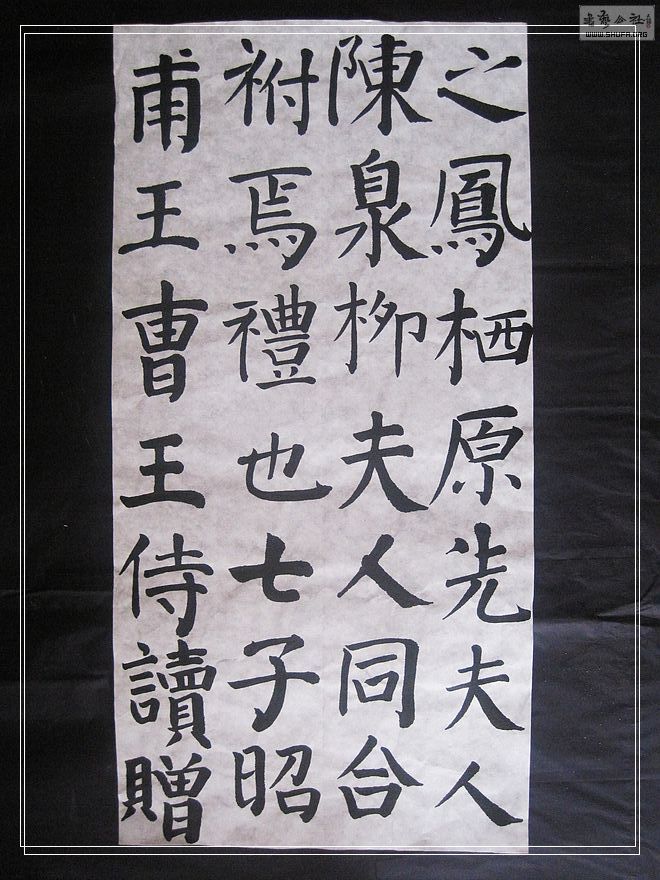 之鳳栖原先夫人
陳泉柳夫人同合
祔焉禮也七子昭
甫王曹王侍讀贈
书艺公社
WWW.SHUFA.ORG